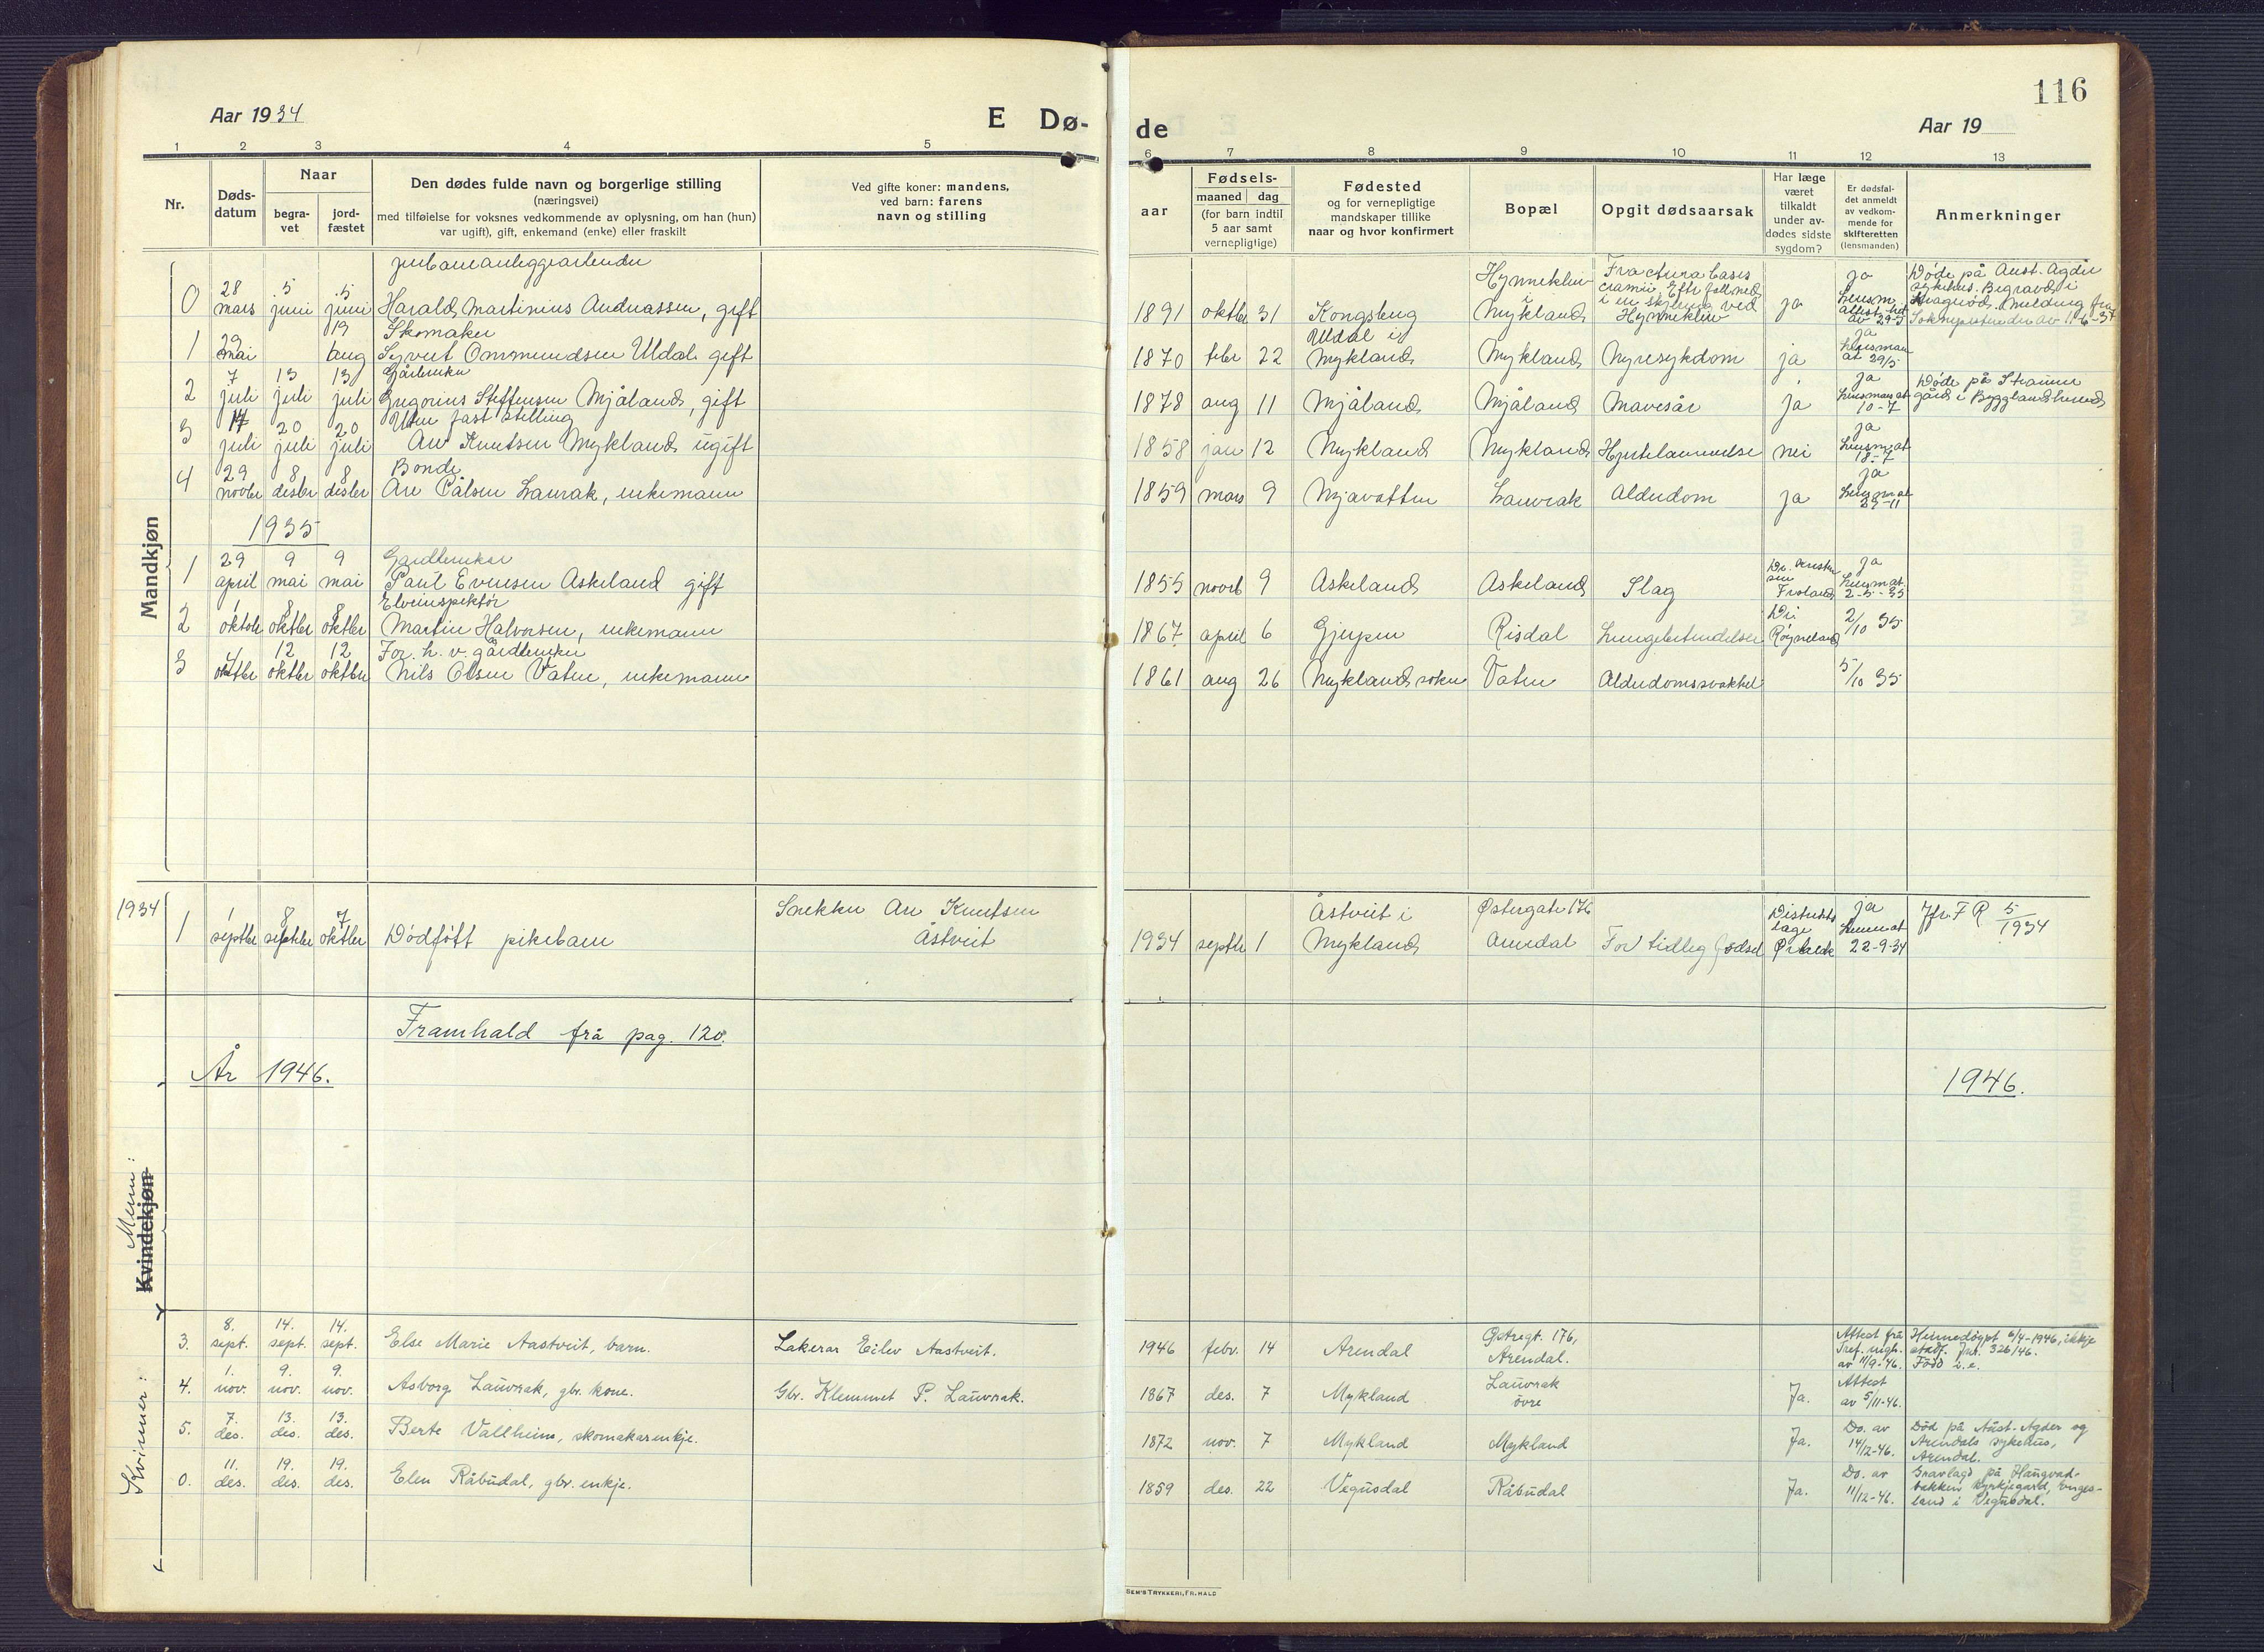 116
Aar 1934
E Dø-
de
Aar 19
1 2 3 4 5 6 7 8 9 10 11 12 13
Nr.
Døds-
datum
Naar
begra-
vet
jord-
fæstet
Den dødes fulde navn og borgerlige stilling
(næringsvei)
med tilføielse for voksnes vedkommende av oplysning, om han (hun)
var ugift), gift, enkemand (enke) eller fraskilt
Ved gifte koner: mandens,
ved barn: farens
navn og stilling
aar
Fødsels-
maaned dag
(for barn indtil
5 aar samt
vernepligtige)
Fødested
og for vernepligtige
mandskaper tillike
naar og hvor konfirmert
Bopæl
Opgit dødsaarsak
Har læge
været
tilkaldt
under av-
dødes sidste
sygdom?
Er dødsfal-
det anmeldt
av vedkom-
mende for
skifteretten
(lensmanden)
Anmerkninger
Mandkjøn
0 28 mars 5 juni 5 juni
Harald Martinius Andreassen, gift
1891 oktbr 31 Kongsberg
Hynnekleiv i Mykland
Fractura basis cranii. Efter fall ned i en skjæring ved Hynnekleiv
ja
ja
Døde på Aust-Agder sykehus. Begravd i
1 29 mai 19 aug
Skomaker
Syvert Ommundsen Uldal gift
1870 febr 22 Uldal i Mykland Mykland Nyresykdom ja
ja Lensman at 29/5
2 7 juli 13 juli 13 juli
Gårdbruker
Gregorius Steffensen Mjåland, gift
1878 aug 11 Mjåland Mjåland Mavesår ja
ja Lensman at 10-7
Døde på Straume gård i Bygglandsherred
3 14 juli 20 juli 20 juli
Uten fast stilling
Arv Knutsen Mykland ugift
1858 jan 12 Mykland Mykland Hjertelammelse nei
ja Lensm at 18-7
4 29 novbr 8 desbr 8 desbr
Bonde
Are Pålsen Laurak, enkemann
1859 mars 9 Mjavatten Lauvrak Alderdom ja
ja Lensm at 29-11
1935
1 29 april 9 mai 9 mai
Gardbruker
Paul Evensen Askeland gift
1855 novb 9 Askeland Askeland Slag
Froland
ja Lensm at. 2-5-35
2 1 oktobr 8 oktbr 8 oktbr
Elveinspektør
Martin Halvorsen, enkemann
1867 april 6 Gjerpen Risdal Lungebetendelse
Røyneland
2/10 35
3 4 oktbr 12 oktbr 12 oktbr
For. h. v. gårdbruker
Nils Olsen Vaten, enkemann
1861 aug 26 Myklandsoknen Vaten Alderdomssvakhet
5/10 35
1934
1 1 septbr 8 septbr 7 oktbr
Dødfött pikebarn
Snekker Are Knutsen
Åstveit
1934 septbr 1 Åstveit i Mykland
Østregate 176 Arendal
For tidlig fødsel
Distriktslæge
ja Lensm at 22-9-34
Jfr. F R 5/1934
Framhald frå pag. 120.
År 1946.
1946.
Menn:
Kvindekjøn
Kvinner:
3. 8. sept. 14. sept. 14. sept.
Else Marie Aastveit, barn.
Lakerar Eilev Aastveit.
1946 febr. 14 Arendal
Østregt. 176, Arendal.
Attest frå av 11/9-46.
Heimedöypt 6/4-1946, ikkje stadf. Jnr. 326/46. Född u.e.
4. 1. nov. 9. nov. 9. nov.
Asborg Lauvrak, gbr. kone.
Gbr. Klemmet P. Lauvrak.
1867 des. 7 Mykland
Lauvrak övre
Ja.
Attest av 5/11-46.
5. 7. des. 13. des. 13. des.
Berte Vallheim, skomakarenkje.
1872 nov. 7 Mykland Mykland Ja.
Do. av 14/12-46.
Död på Aust-Agder og Arendals sykehus, Arendal.
0. 11. des. 19. des. 19. des.
Elen Råbudal, gbr. enkje.
1859 des. 22 Vegusdal Råbudal Ja.
Do. av 11/12-46.
Gravlagd på Haugvad-
bakken kyrkjegard, Enges-
land i Vegusdal.
SEM'S TRYKKERI, FR.HALD